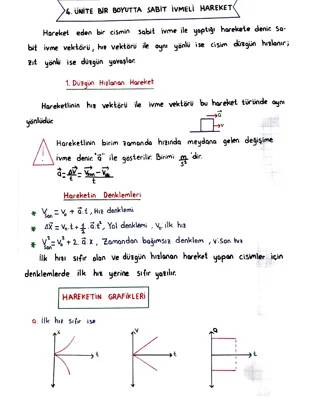 4. ÜNİTE BİR BOYUTTA SABİT İVMELİ HAREKET
Hareket eden bir cismin sabit ivme ile yaptığı harekete denir. Sa-
bit ivme vektörü, hız vektörü ile aynı yönlü ise cisim düzgün hızlanır;
zıt yönlü ise düzgün yavaşlar.
1. Düzgün Hızlanan Hareket
Hareketlinin hız vektörü ile ivme vektörü bu hareket türünde aynı
yönlüdür.
a
v
Hareketlinin birim zamanda hızında meydana gelen değişime
ivme denir "a" ile gösterilir. Birimi m/s² 'dir.
a = ΔV/t = Vson - Vo/t
Hareketin Denklemleri
* Vson = Vo + a.t, Hız denklemi
* ΔX = Vo.t + 1/2 a.t², Yol denklemi, Vo ilk hız
* Vson² = Vo² + 2.a.x, Zamandan bağımsız denklem, V:Son hız
İlk hızı sıfır olan ve düzgün hızlanan hareket yapan cisimler için
denklemlerde ilk hız yerine sıfır yazılır.
HAREKETİN GRAFİKLERİ
a. İlk hız sıfır ise
x t V t a t